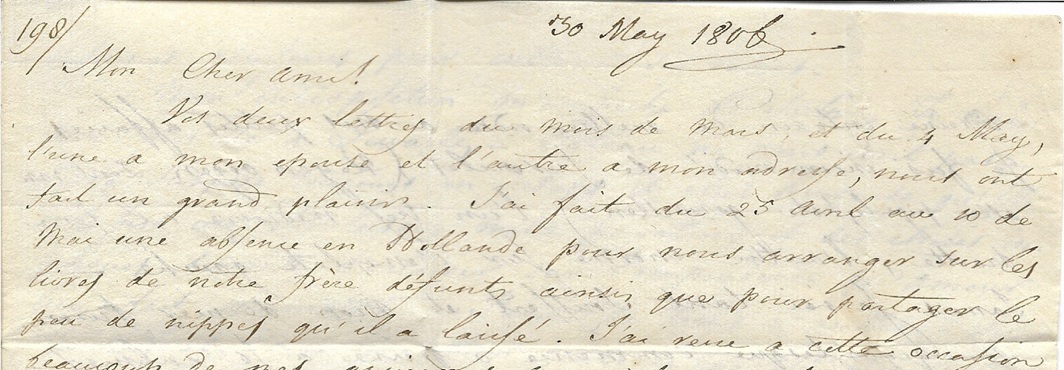 198/
30 May 1806
Mon Cher ami!
Vos deux lettres du mois de Mars et du 4 May,
l'une a mon epouse et l'autre a mon adresse, nous ont
fait un grand plaisir. J'ai fait du 25 avril au 10 de
Mai une absence en Hollande pour nous arranger sur les
livres de notre frère défunts ainsi que pour partager le
peu de nippes qu'il a laissé. J'ai revu a cette occasion
beaucoup de nos